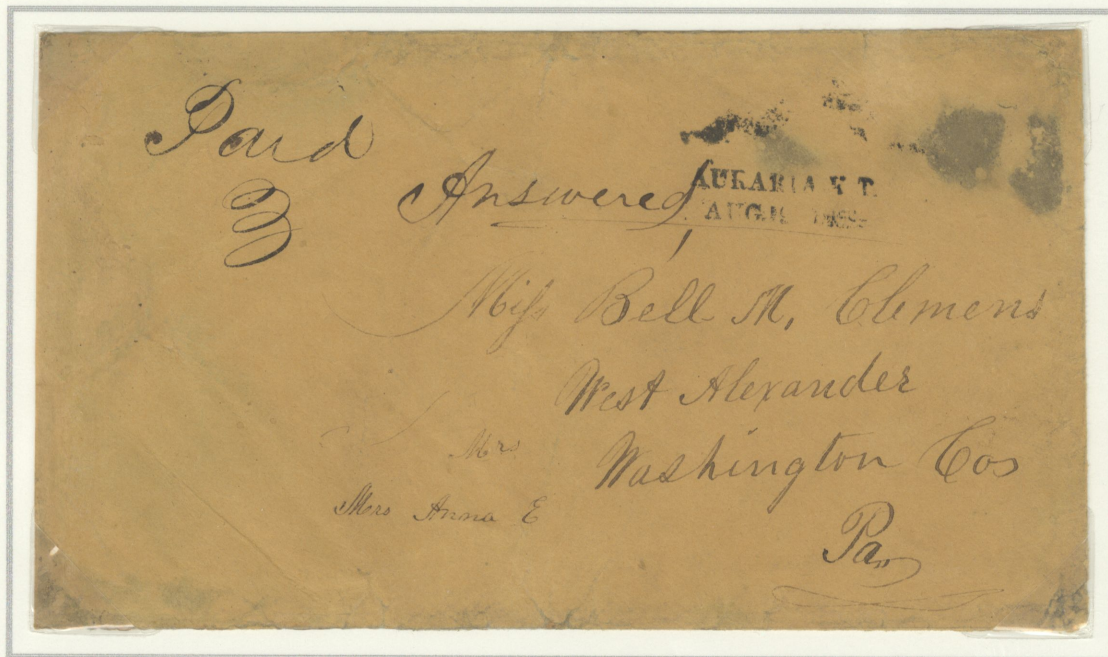 Paid
3
Answered!
AURARIA K T.
AUG.
Miss Bell M. Clemens
West Alexander
Washington Cos
Pa
Mrs
Mrs Anna E